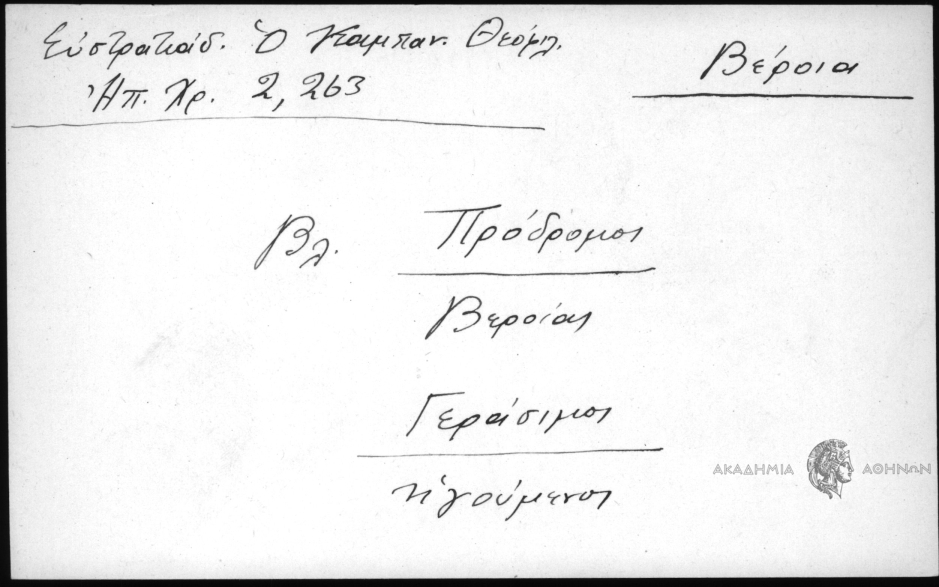 Εὐστρατιάδ. Ὁ Καμπαν. Θεόφιλ.
Ἠπ. Χρ. 2, 263
Βέροια
Βλ. Πρόδρομος
Βεροίας
Γεράσιμος
ἡγούμενος
ΑΚΑΔΗΜΙΑ ΑΘΗΝΩΝ